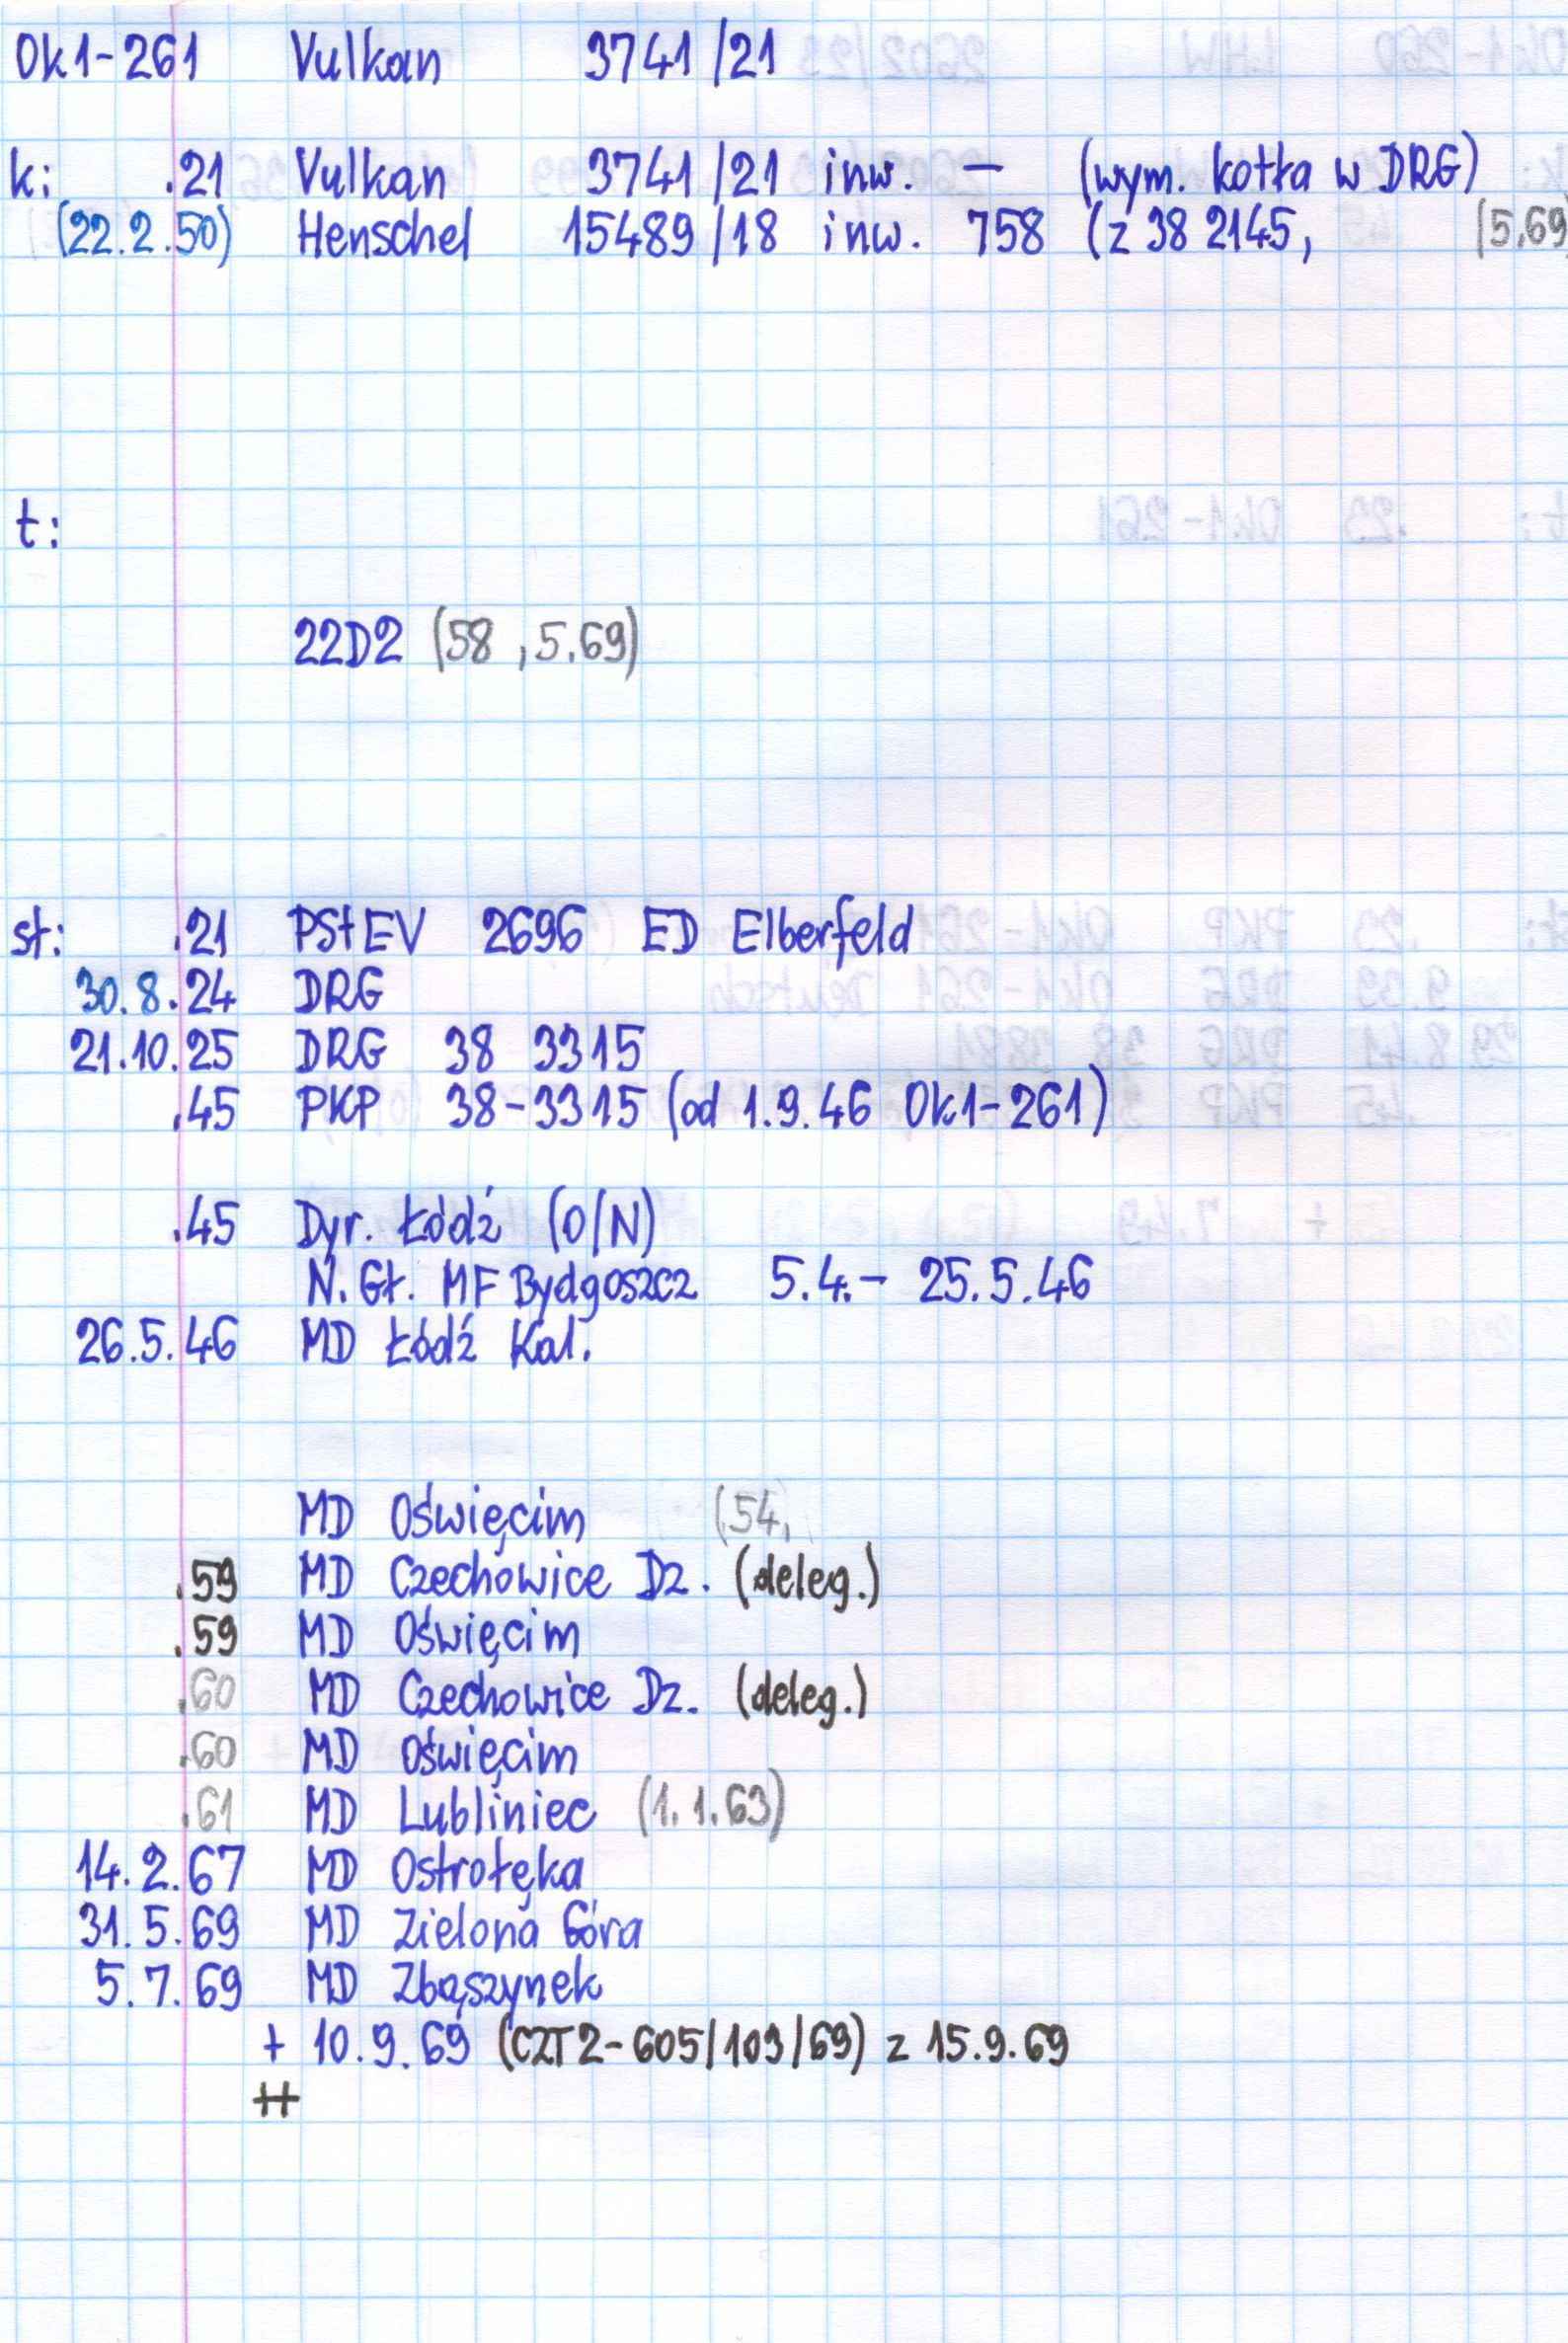 Ok1-261 Vulkan 3741/21
k: .21 Vulkan 3741/21 inw. – (wym. kotła w DRG)
(22.2.50) Henschel 15489/18 inw. 758 (z 38 2145, (5.69)
t:
22D2 (58 , 5.69)
st: .21 PStEV 2696 ED Elberfeld
30.8.24 DRG
21.10.25 DRG 38 3315
.45 PKP 38-3315 (od 1.9.46 Ok1-261)
.45 Dyr. Łódź (O/N)
N. Gł. MF Bydgoszcz 5.4.- 25.5.46
26.5.46 MD Łódź Kal.
MD Oświęcim (54,
.59 MD Czechowice Dz. (deleg.)
.59 MD Oświęcim
.60 MD Czechowice Dz. (deleg.)
.60 MD Oświęcim
.61 MD Lubliniec (1.1.63)
14.2.67 MD Ostrołęka
31.5.69 MD Zielona Góra
5.7.69 MD Zbąszynek
+ 10.9.69 (CZT2-605/103/69) z 15.9.69
++